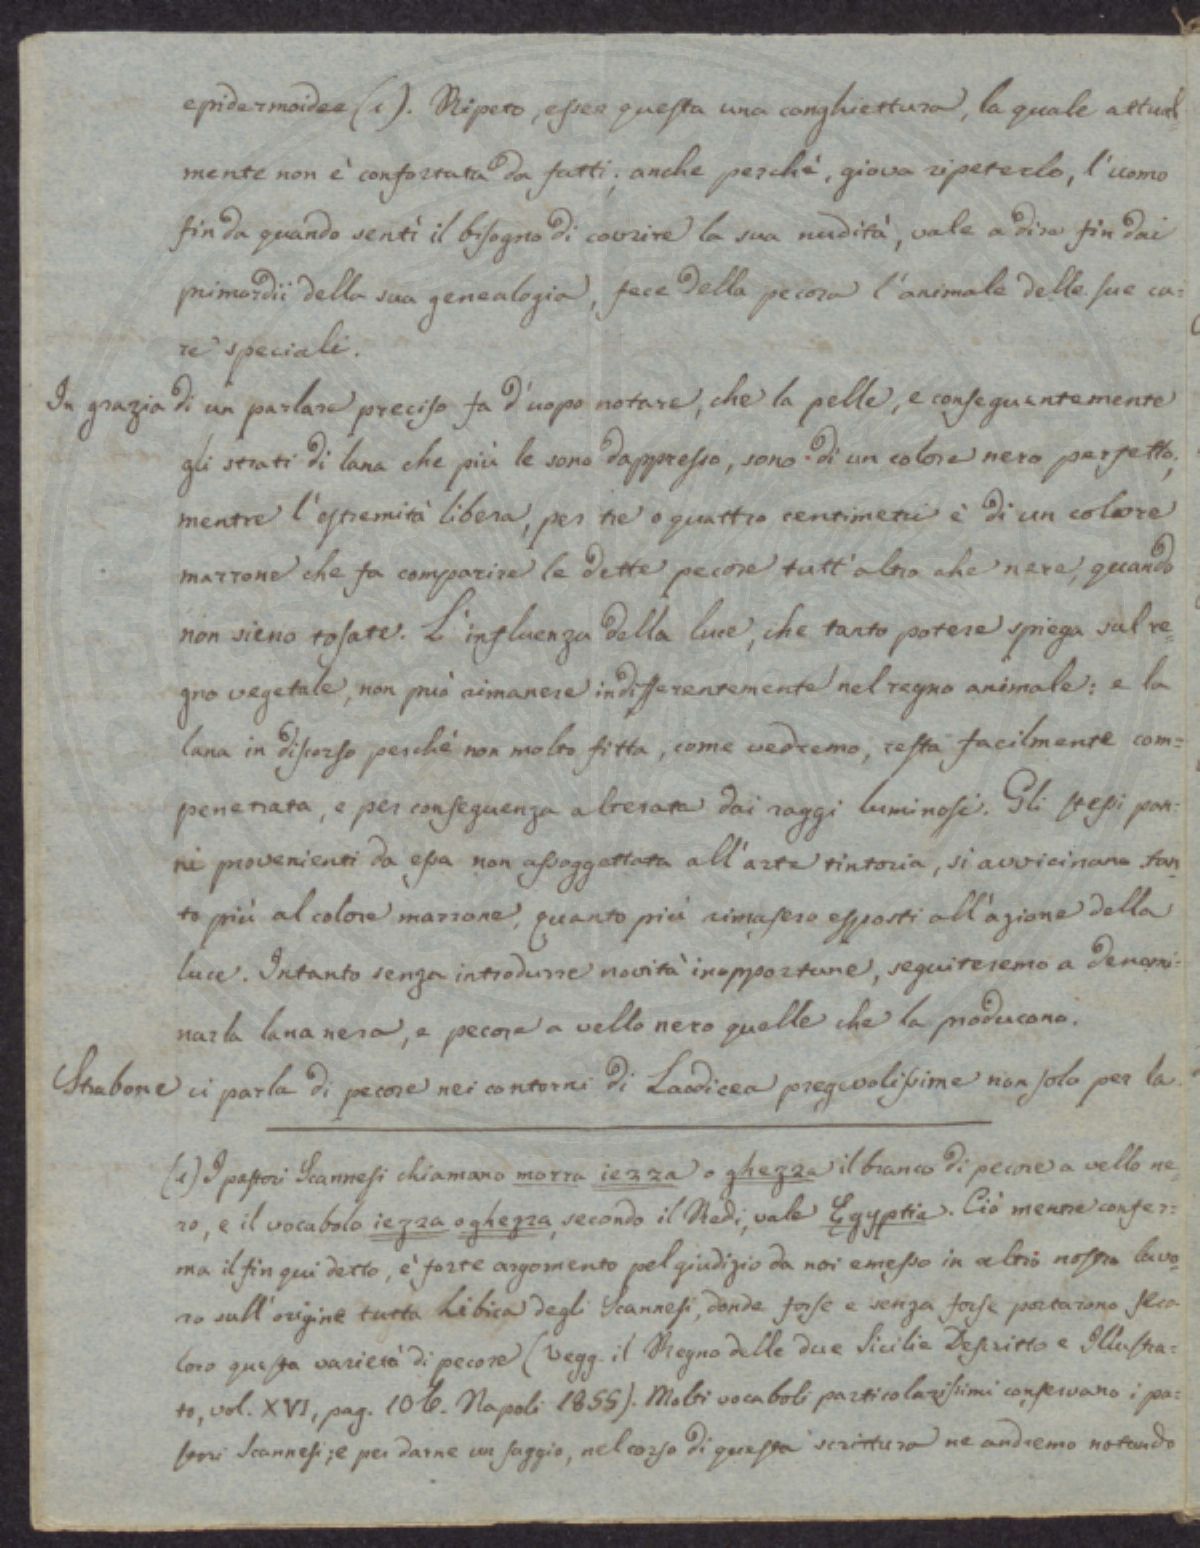 epidermoidee (1). Ripeto, esser questa una conghiettura, la quale attual-
mente non è confortata da fatti; anche perchè, giova ripeterlo, l'uomo
fin da quando sentì il bisogno di covrire la sua nudità, vale a dire fin dai
primordii della sua genealogia, fece della pecora l'animale delle sue cu=
re speciali.
In grazia di un parlare preciso fa d'uopo notare, che la pelle, e conseguentemente
gli strati di lana che più le sono dappresso, sono di un colore nero perfetto,
mentre l'estremità libera, per tre o quattro centimetri è di un colore
marrone che fa comparire le dette pecore tutt'altro che nere, quando
non sieno tosate. L'influenza della luce, che tanto potere spiega sul re=
gno vegetale, non può rimanere indifferentemente nel regno animale: e la
lana in discorso perchè non molto fitta, come vedremo, resta facilmente com=
penetrata, e per conseguenza alterata dai raggi luminosi. Gli stessi pan=
ni provenienti da essa non assoggettata all'arte tintoria, si avvicinano tan
to più al colore marrone, quanto più rimasero esposti all'azione della
luce. Intanto senza introdurre novità inopportune, seguiteremo a denomi=
narla lana nera, e pecore a vello nero quelle che la producono.
Strabone ci parla di pecore nei contorni di Laodicea pregevolissime non solo per la
(1) I pastori Scannesi chiamano morra iezza o ghezza il branco di pecore a vello ne
ro, e il vocabolo iezza o ghezza, secondo il Redi, vale Egyptia. Ciò mentre confer=
ma il fin qui detto, è forte argomento pel giudizio da noi emesso in altro nostro lavo
ro sull'origine tutta Libica degli Scannesi, donde forse e senza forse portarono seco
loro questa varietà di pecore (Vegg. il Regno delle due Sicilie Descritto e Illustra=
to, vol. XVI, pag. 106. Napoli 1855). Molti vocaboli particolarissimi conservano i pa=
stori Scannesi; e per darne un saggio, nel corso di questa scrittura ne andremo notando